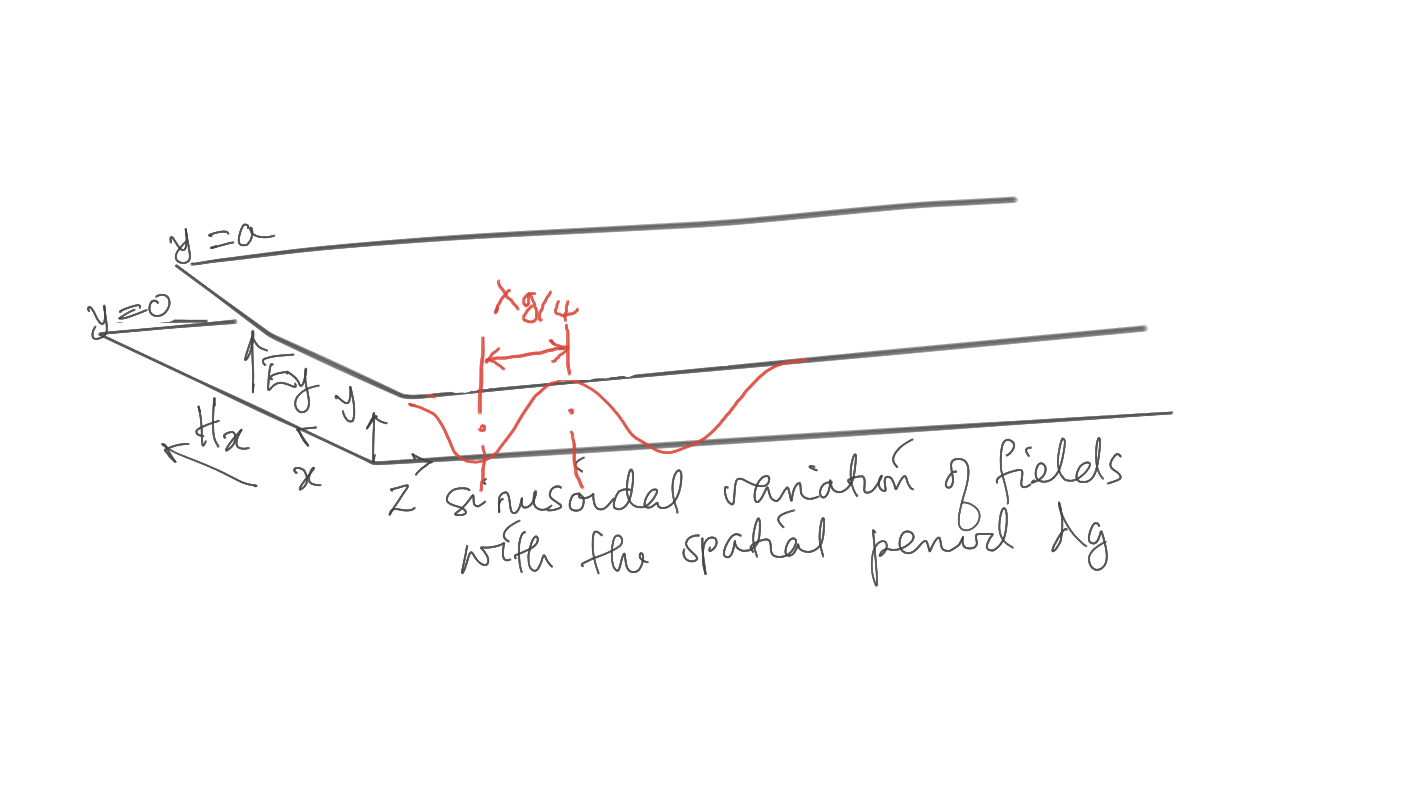 y=a
λg/4
y=0
Ey
y
Hx
x
z
sinusoidal variation of fields
with the spatial period λg